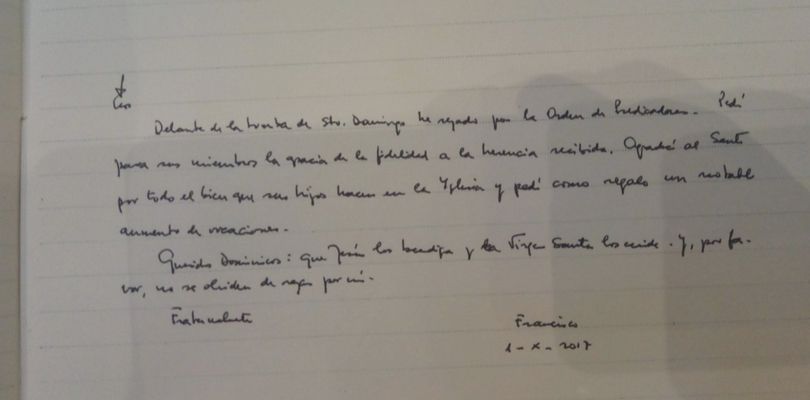 Delante de la tumba de Sto. Domingo he rezado por la Orden de Predicadores. Pedí
para sus miembros la gracia de la fidelidad a la herencia recibida. Agradecí al Santo
por todo el bien que sus hijos hacen en la Iglesia y pedí como regalo un notable
aumento de vocaciones.
Queridos Dominicos: que Jesús los bendiga y la Virgen Santa los cuide. Y, por fa-
vor, no se olviden de rezar por mí.
Fraternalmente
Francisco
1-X-2017